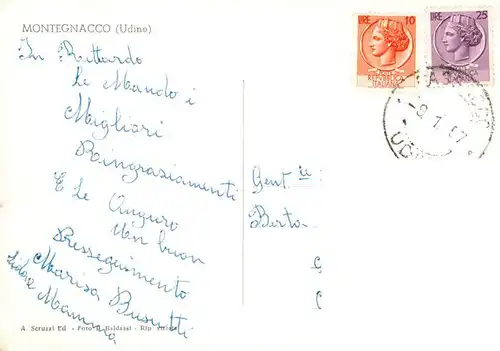 MONTEGNACCO (Udine)
In Rittardo
Le Mando i
Migliori
Ringraziamenti
E Le Auguro
un buon
Proseguimento
Marisa Busutti
e Mamma
A. Scrussi Ed - Foto Baldassi - Rip
LIRE 10
REPUBBLICA
ITALIANA
LIRE 25
UD
Gent ie:
Berto